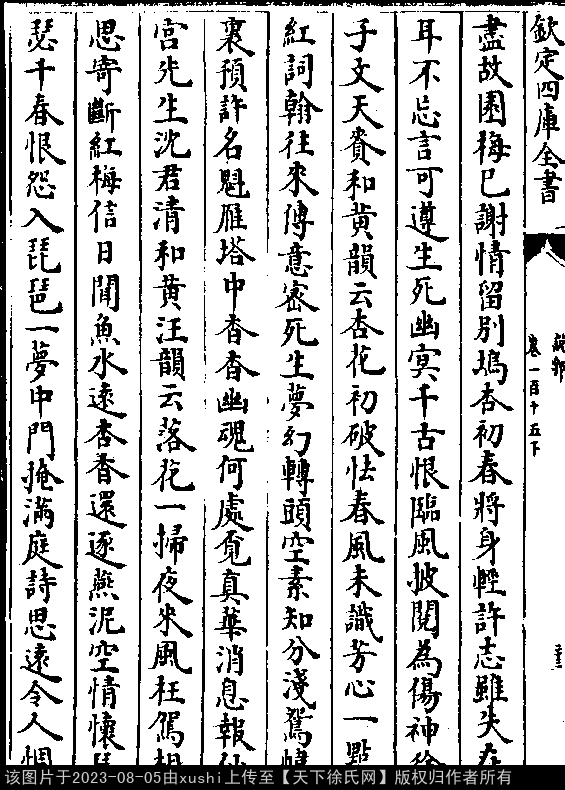 欽定四庫全書
說郛
卷一百十五下
盡故園梅已謝情留別塢杏初春將身輕許志雖失在
耳不忘言可遵生死幽冥千古恨臨風披閱為傷神徐
子文天賚和黄韻云杏花初破怯春風未識芳心一點
紅詞翰往來傳意密死生夢幻轉頭空素知分淺鴛幃
裏預許名魁雁塔中杳杳幽魂何處覓真華消息報仙
宫先生沈君清和黄汪韻云落花一掃夜來風枉駕相
思寄斷紅梅信日聞魚水遠杏香還逐燕泥空情懷琴
瑟千春恨怨入琵琶一夢中門掩滿庭詩思遠令人惆
该图片于2023-08-05由xushi上传至【天下徐氏网】版权归作者所有